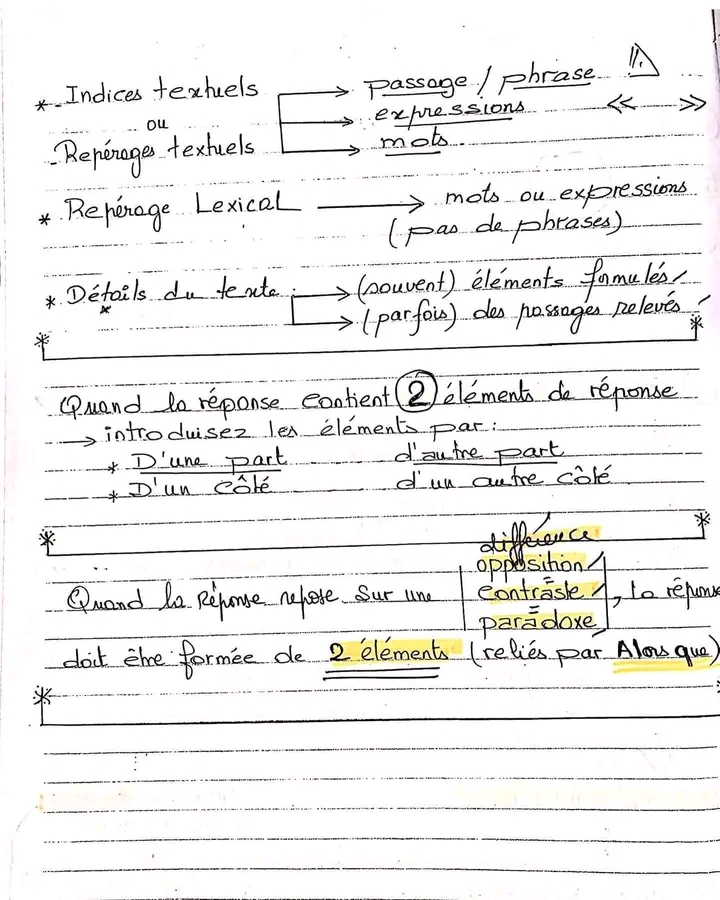 * Indices textuels → passage / phrase !!
ou → expressions << >>
- Repérages textuels → mots.
* Repérage Lexical → mots ou expressions
(pas de phrases)
* Détails du texte : → (souvent) éléments formulés /
→ (parfois) des passages relevés /
Quand la réponse contient 2 éléments de réponse
→ introduisez les éléments par :
* D'une part d'autre part
* D'un côté d'un autre côté
différence
opposition /
Quand la Réponse repose Sur une contraste /, la réponse
paradoxe
doit être formée de 2 éléments (reliés par Alors que)